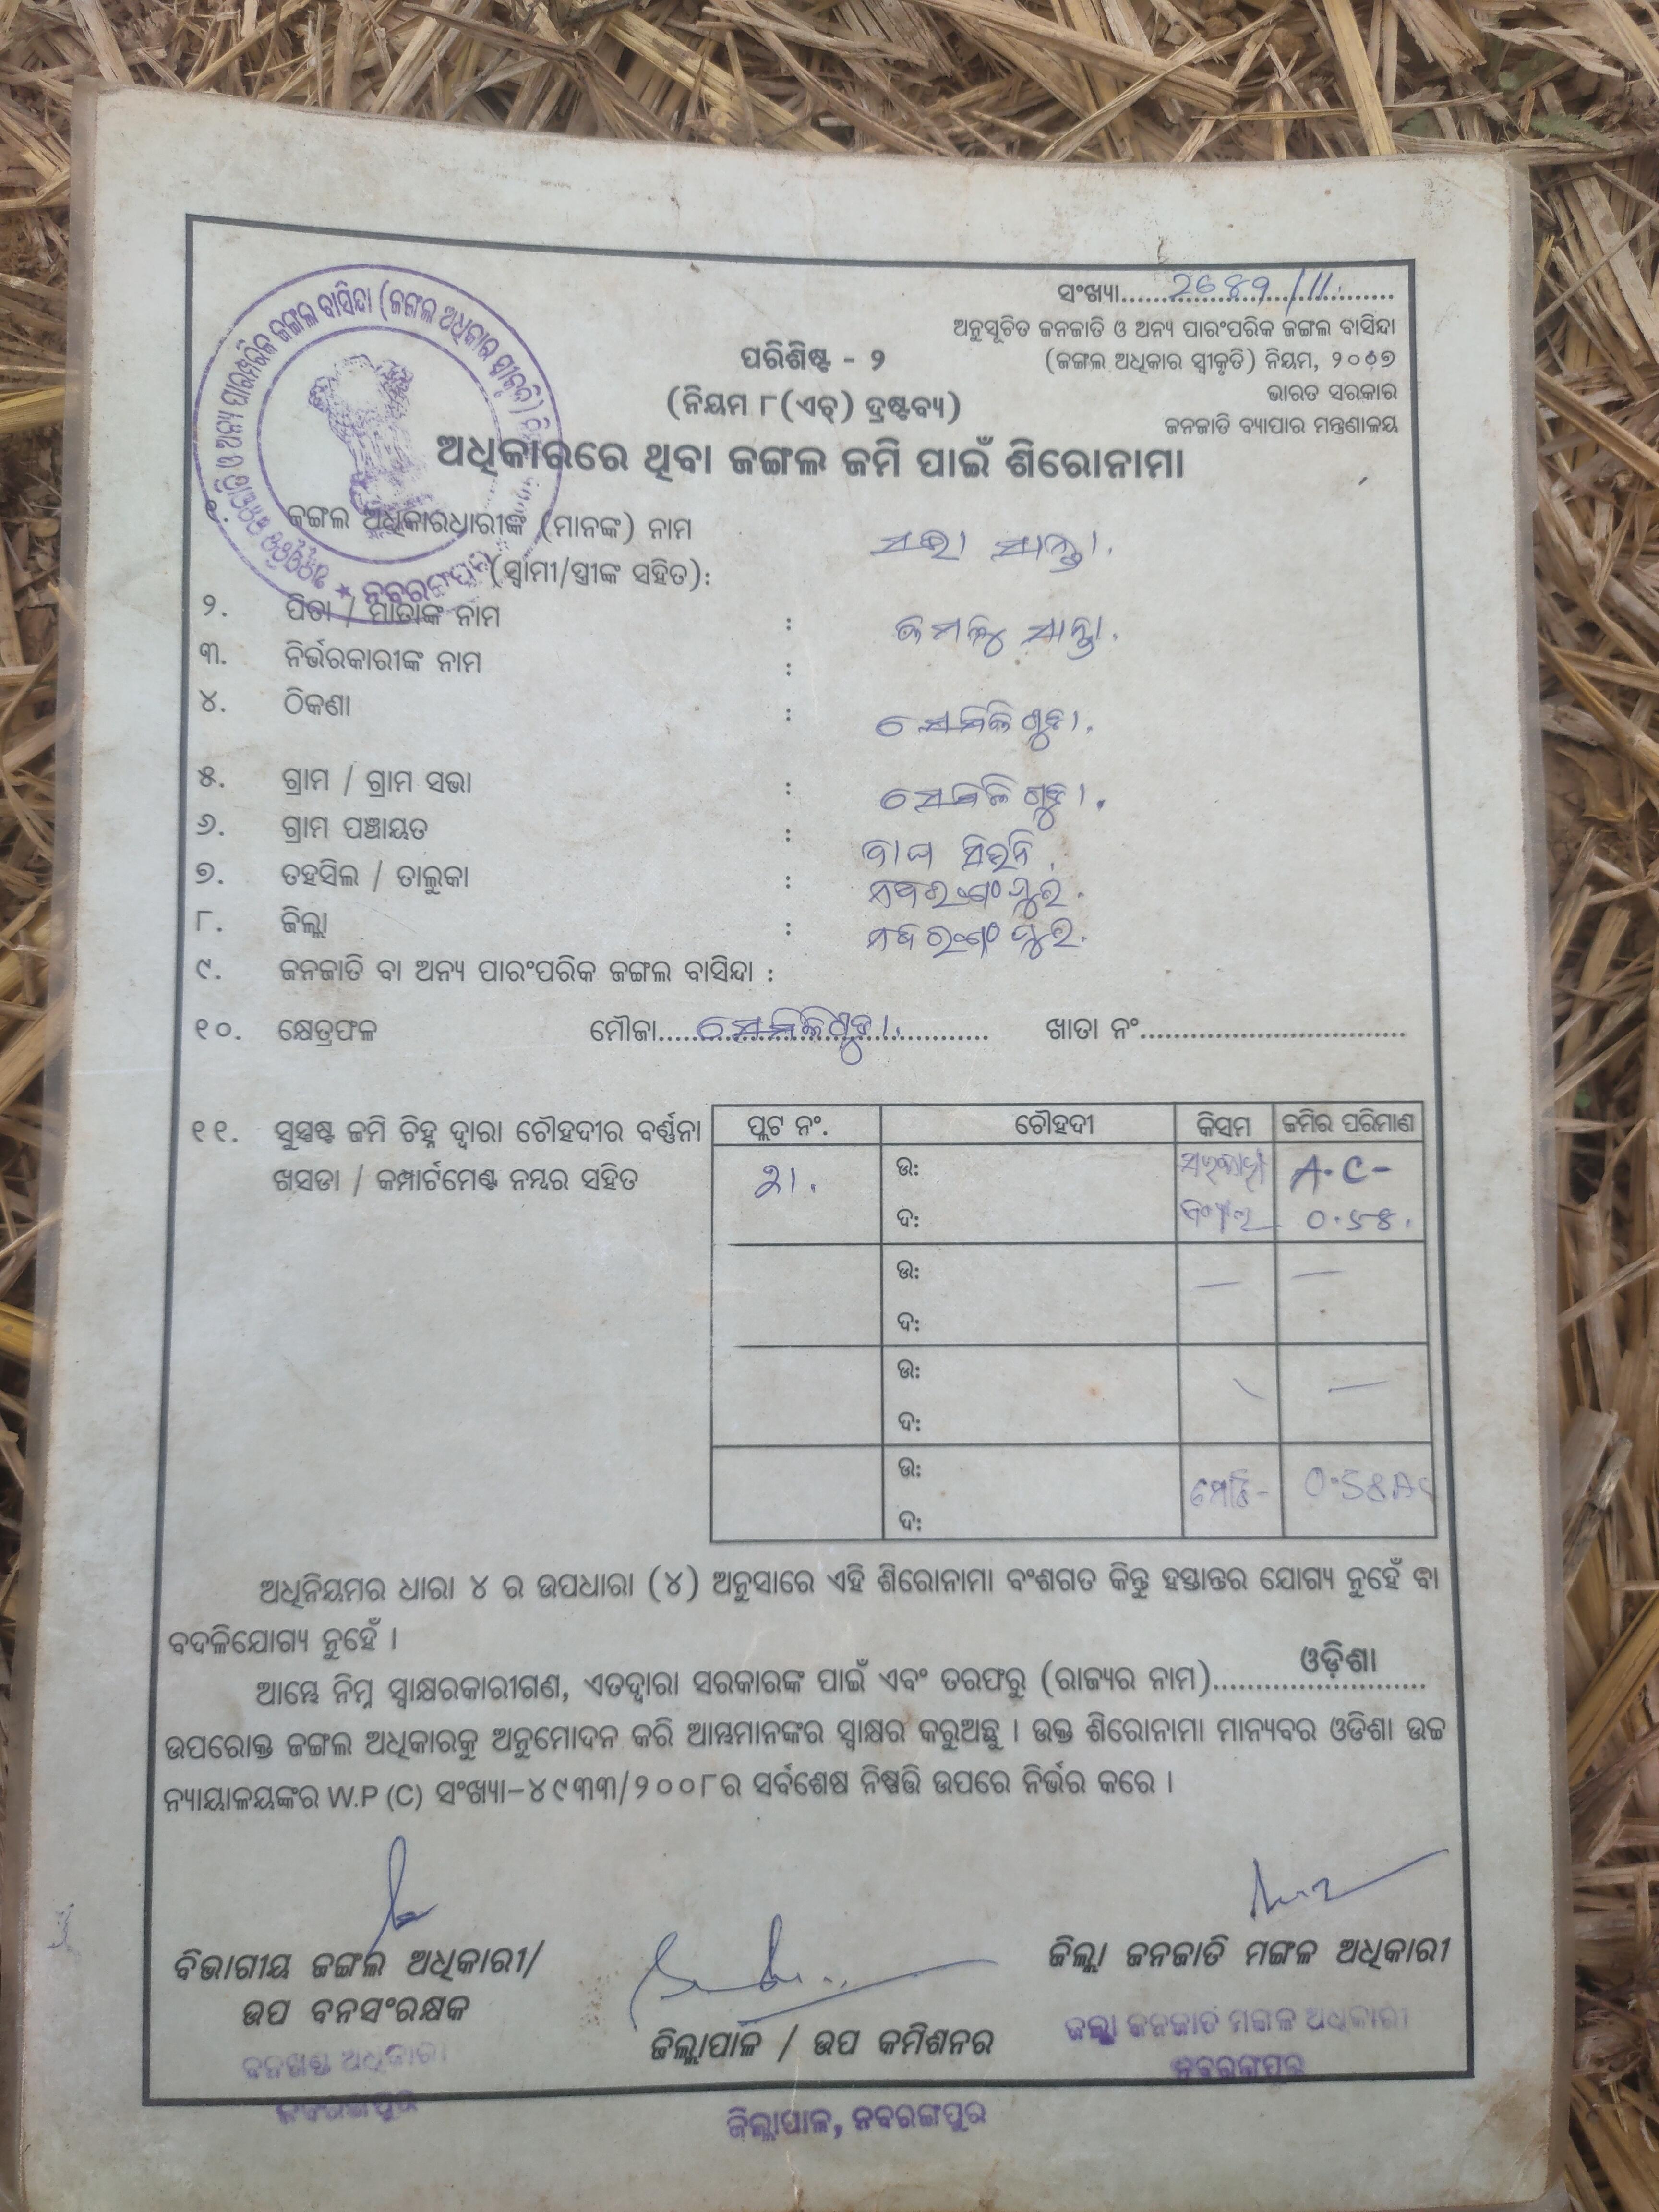 ସଂଖ୍ୟା..................................
ଅନୁସୂଚିତ ଜନଜାତି ଓ ଅନ୍ୟ ପାରଂପରିକ ଜଙ୍ଗଲ ବାସିନ୍ଦା
(ଜଙ୍ଗଲ ଅଧିକାର ସ୍ୱୀକୃତି) ନିୟମ, ୨୦୦୭
ଭାରତ ସରକାର
ଜନଜାତି ବ୍ୟାପାର ମନ୍ତ୍ରଣାଳୟ
ପରିଶିଷ୍ଟ - ୨
(ନିୟମ ୮(ଏଚ୍) ଦ୍ରଷ୍ଟବ୍ୟ)
ଅଧିକାରରେ ଥିବା ଜଙ୍ଗଲ ଜମି ପାଇଁ ଶିରୋନାମା
୧. ଜଙ୍ଗଲ ଅଧିକାରଧାରୀଙ୍କ (ମାନଙ୍କ) ନାମ
(ସ୍ୱାମୀ/ସ୍ତ୍ରୀଙ୍କ ସହିତ):
୨. ପିତା / ମାତାଙ୍କ ନାମ :
୩. ନିର୍ଭରକାରୀଙ୍କ ନାମ :
୪. ଠିକଣା :
୫. ଗ୍ରାମ / ଗ୍ରାମ ସଭା :
୬. ଗ୍ରାମ ପଞ୍ଚାୟତ :
୭. ତହସିଲ / ତାଲୁକା : ନବରଂଗପୁର.
୮. ଜିଲ୍ଲା : ନବରଂଗପୁର.
୯. ଜନଜାତି ବା ଅନ୍ୟ ପାରଂପରିକ ଜଙ୍ଗଲ ବାସିନ୍ଦା :
୧୦. କ୍ଷେତ୍ରଫଳ ମୌଜା.................................. ଖାତା ନଂ..................................
୧୧. ସୁସ୍ପଷ୍ଟ ଜମି ଚିହ୍ନ ଦ୍ୱାରା ଚୌହଦୀର ବର୍ଣ୍ଣନା
ଖସଡା / କମ୍ପାର୍ଟମେଣ୍ଟ ନମ୍ବର ସହିତ
ପ୍ଲଟ ନଂ. ଚୌହଦୀ କିସମ ଜମିର ପରିମାଣ
ଉ: A.C-
ଦ:
ଉ: — —
ଦ:
ଉ: —
ଦ:
ଉ: ମୋଟ-
ଦ:
ଅଧିନିୟମର ଧାରା ୪ ର ଉପଧାରା (୪) ଅନୁସାରେ ଏହି ଶିରୋନାମା ବଂଶଗତ କିନ୍ତୁ ହସ୍ତାନ୍ତର ଯୋଗ୍ୟ ନୁହେଁ ବା
ବଦଳିଯୋଗ୍ୟ ନୁହେଁ ।
ଆମ୍ଭେ ନିମ୍ନ ସ୍ୱାକ୍ଷରକାରୀଗଣ, ଏତଦ୍ୱାରା ସରକାରଙ୍କ ପାଇଁ ଏବଂ ତରଫରୁ (ରାଜ୍ୟର ନାମ)..........ଓଡ଼ିଶା..........
ଉପରୋକ୍ତ ଜଙ୍ଗଲ ଅଧିକାରକୁ ଅନୁମୋଦନ କରି ଆମ୍ଭମାନଙ୍କର ସ୍ୱାକ୍ଷର କରୁଅଛୁ । ଉକ୍ତ ଶିରୋନାମା ମାନ୍ୟବର ଓଡିଶା ଉଚ୍ଚ
ନ୍ୟାୟାଳୟଙ୍କର W.P (C) ସଂଖ୍ୟା-୪୯୩୩/୨୦୦୮ର ସର୍ବଶେଷ ନିଷ୍ପତ୍ତି ଉପରେ ନିର୍ଭର କରେ ।
ବିଭାଗୀୟ ଜଙ୍ଗଲ ଅଧିକାରୀ/
ଉପ ବନସଂରକ୍ଷକ
ବନଖଣ୍ଡ ଅଧିକାରୀ
ନବରଙ୍ଗପୁର
ଜିଲ୍ଲାପାଳ / ଉପ କମିଶନର
ଜିଲ୍ଲାପାଳ, ନବରଙ୍ଗପୁର
ଜିଲ୍ଲା ଜନଜାତି ମଙ୍ଗଳ ଅଧିକାରୀ
ଜିଲ୍ଲା ଜନଜାତି ମଙ୍ଗଳ ଅଧିକାରୀ
ନବରଙ୍ଗପୁର